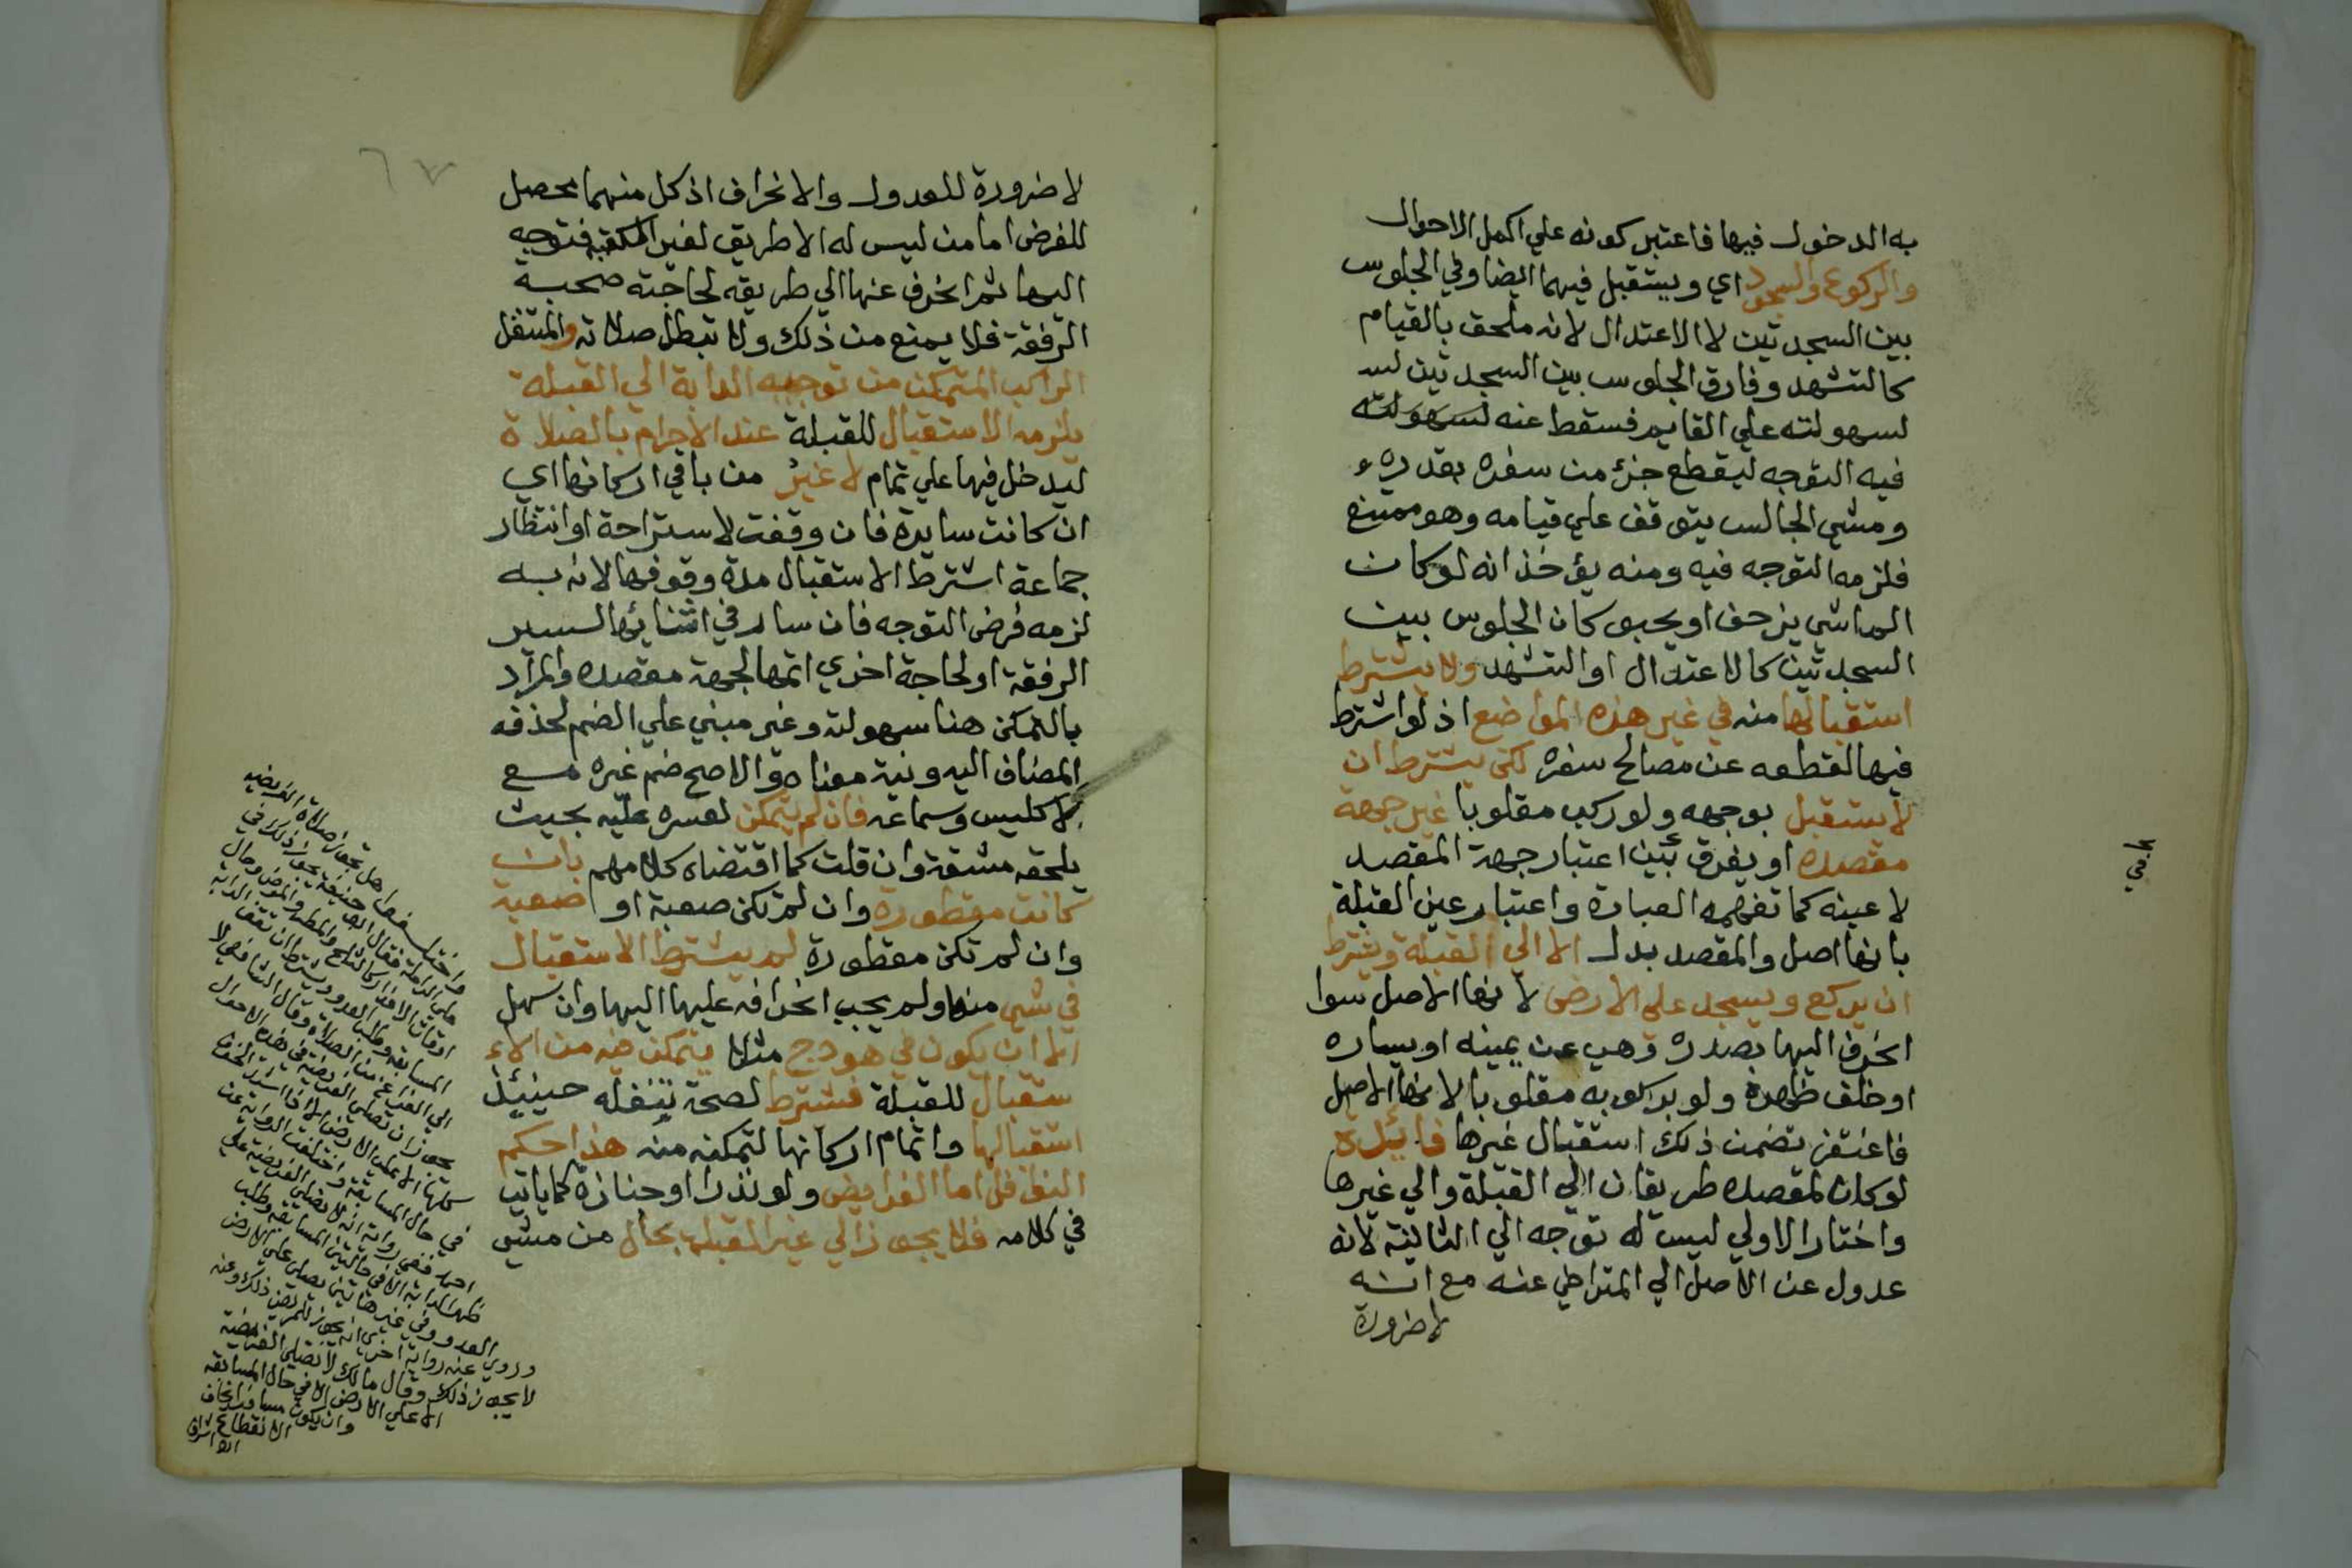 به الدخول فيها فاعتبر كونه علي اكمل الاحوال
والركوع والسجود اي ويستقبل فيهما ايضا وفي الجلوس
بين السجدتين لا الاعتدال لانه ملحق بالقيام
كالتشهد وفارق الجلوس بين السجدتين لسـ
لسهولته علي القايم فسقط عنه لسهولته
فيه التوجه ليقطع جزء من سفره بقدره
ومشي الجالس يتوقف علي قيامه وهو ممتنع
فلزمه التوجه فيه ومنه يؤخذ انه لو كان
الماشي يزحف او يحبو كان الجلوس بين
السجدتين كالاعتدال او التشهد ولا يشترط
استقبالها منه في غير هذه المواضع اذ لو اشترط
فيها لقطعه عن مصالح سفره لكن يشترط ان
لا يستقبل بوجهه ولو ركب مقلوبا غير جهة
مقصده او يفرق بين اعتبار جهة المقصد
لا عينه كما تفهمه العبارة واعتبار عين القبلة
بانها اصل والمقصد بدل الا الي القبلة ويشترط
ان يركع ويسجد علي الارض لانها الاصل سوا
انحرف اليها بصدره وهي عن يمينه او يساره
او خلف ظهره ولو بركوبه مقلوبا لانها الاصل
فاغتفر تضمن ذلك استقبال غيرها فائدة
لو كان لمقصده طريقان الي القبلة والي غيرها
واختار الاولي ليس له توجه الي الثانية لانه
عدول عن الاصل الي المتراخي عنه مع انه
لا ضرورة
في
لا ضرورة للعدول والانحراف اذ كل منهما محصل
للغرض اما من ليس له الا طريق لغير الكعبة فتوجه
اليها ثم انحرف عنها الي طريقه لحاجته صحبة
الرفقة فلا يمنع من ذلك ولا تبطل صلاته والمتنفل
الراكب المتمكن من توجيه الدابة الي القبلة
يلزمه الاستقبال للقبلة عند الاحرام بالصلاة
ليدخل فيها علي تمام لا غير من باقي اركانها اي
ان كانت سايرة فان وقفت لاستراحة او انتظار
جماعة اشترط الاستقبال مدة وقوفها لانه به
لزمه فرض التوجه فان سار في اثنائها لسير
الرفقة او لحاجة اخري اتمها لجهة مقصده والمراد
بالتمكن هنا سهولته وغير مبني علي الضم لحذف
المضاف اليه ونية معناه والاصح ضم غير مع
لا كليس وسماعه فان لم يتمكن لعسره عليه بحيث
يلحقه مشقة وان قلت كما اقتضاه كلامهم بان
كانت مقطورة وان لم تكن صعبة او صعبة
وان لم تكن مقطورة لم يشترط الاستقبال
في شي منها ولم يجب انحرافه عليها اليها وان سهل
الا ان يكون في هودج مثلا يتمكن فيه من الا
ستقبال للقبلة فشترط لصحة تنفله حينئذ
استقبالها واتمام اركانها لتمكنه منه هذا حكم
النوافل اما الفرايض ولو نذرا او جنازة كما ياتي
في كلامه فلا يجوز الي غير القبلة بحال من مشي
واختلفوا هل تجوز صلاة الفريضة
علي الراحلة فقال ابو حنيفة يجوز ذلك في
اوقات الاعذار كالثلج والمطر والمرض وحال
المسايفة وطلب العدو ويشترط ان تقف الدابة
الي الفراغ من الصلاة وقال الشافعي لا
يجوز ان تصلي الفريضة في هذه الاحوال
كلها الا علي الارض الا اذا اشتد الخوف
في حال المسايفة واختلفت الرواية عن
احمد ففي رواية انه لا يصلي الفريضة علي
ظهر الدابة الا في حالتين المسايفة وطلب
العدو وفي غير هاتين يصلي علي الارض
وروي عنه رواية اخري انه يجوز للمريض ذلك وعنه
لا يجوز ذلك وقال مالك لا تصلي الفريضة
الا علي الارض الا في حال المسايفة
وان يكون مسافرا يخاف
الانقطاع